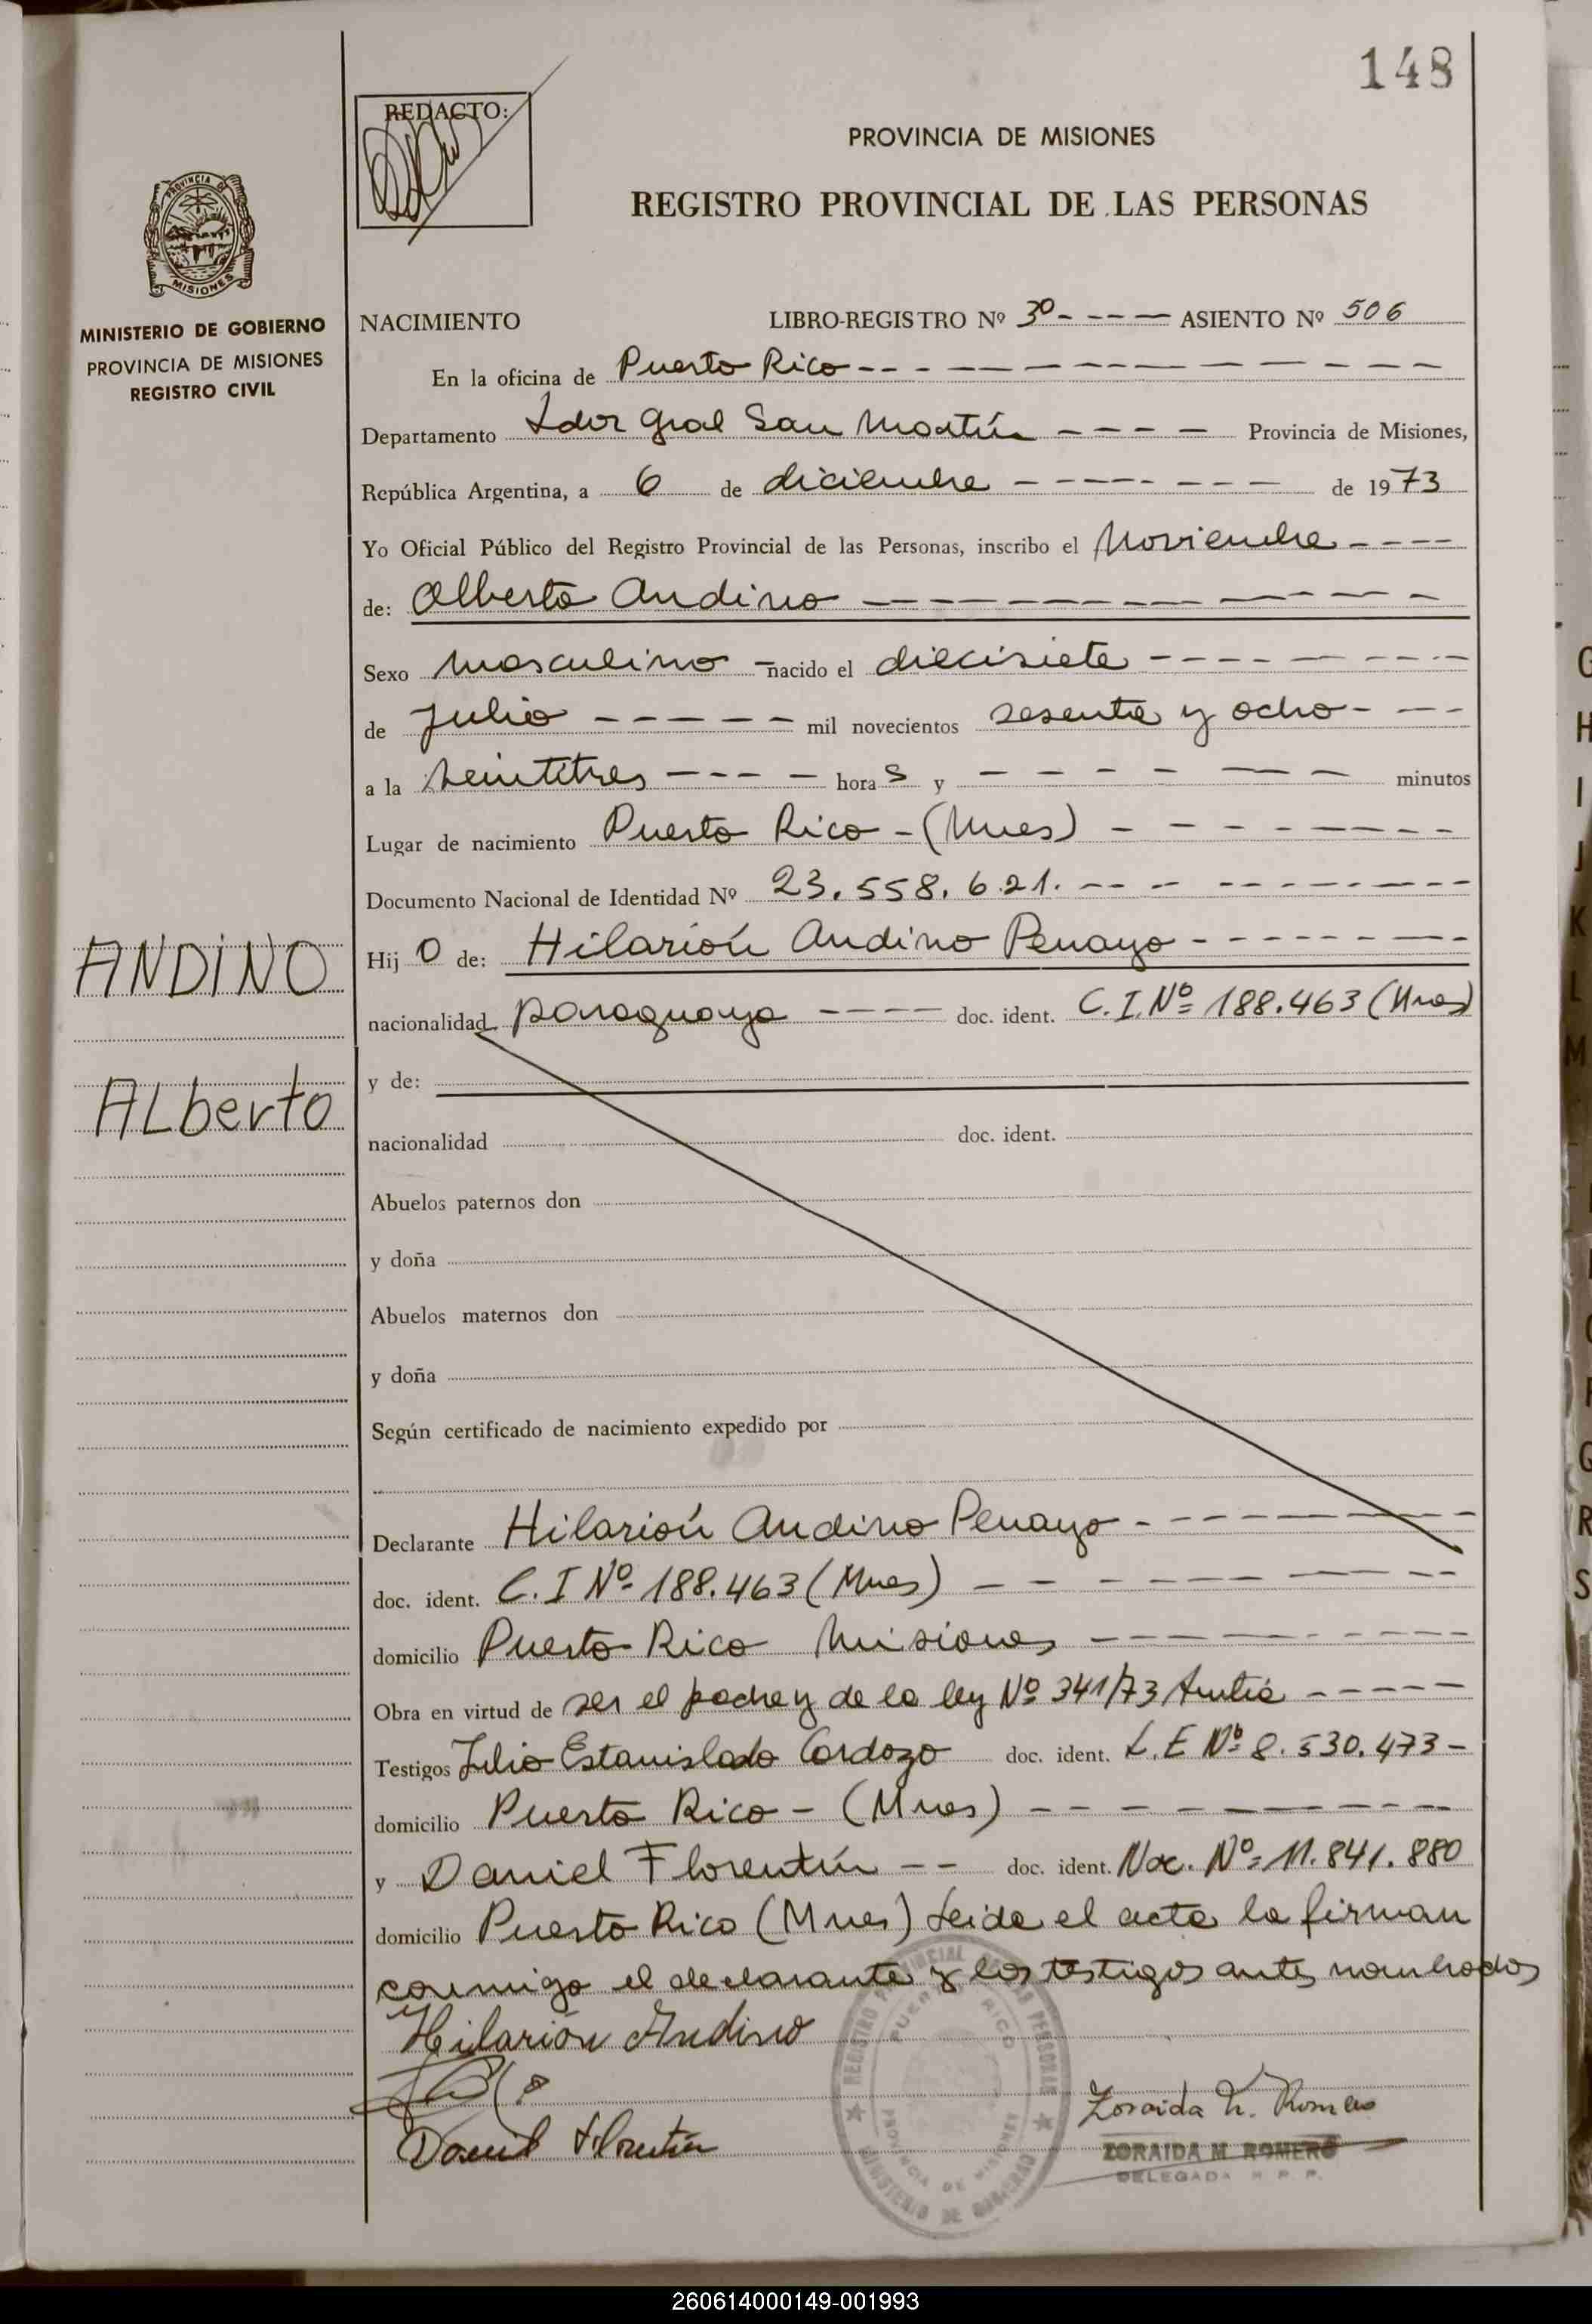 148
REDACTO:
PROVINCIA DE MISIONES
REGISTRO PROVINCIAL DE LAS PERSONAS
PROVINCIA D
MISIONES
MINISTERIO DE GOBIERNO
PROVINCIA DE MISIONES
REGISTRO CIVIL
NACIMIENTO LIBRO-REGISTRO Nº 3º ASIENTO Nº 506
En la oficina de Puerto Rico
Departamento Ldor Gral San Martín Provincia de Misiones,
República Argentina, a 6 de diciembre de 1973
Yo Oficial Público del Registro Provincial de las Personas, inscribo el
de: Alberto Andino
Sexo masculino nacido el diecisiete
de Julio mil novecientos sesenta y ocho
a la veintitres horas y minutos
Lugar de nacimiento Puerto Rico - (Mnes)
Documento Nacional de Identidad Nº 23.558.621.
ANDINO
Hijo de: Hilarión Andino Penayo
nacionalidad paraguaya doc. ident. C.I. Nº 188.463 (Mnes)
y de:
ALberto
nacionalidad doc. ident.
Abuelos paternos don
y doña
Abuelos maternos don
y doña
Según certificado de nacimiento expedido por
Declarante Hilarión Andino Penayo
doc. ident. C.I Nº 188.463 (Mnes)
domicilio Puerto Rico Misiones
Obra en virtud de ser el padre y de la ley Nº 341/73
Testigos Julio Estanislado Cardozo doc. ident. L.E Nº 8.530.473
domicilio Puerto Rico - (Mnes)
y Daniel Florentín doc. ident. Nº 11.841.880
domicilio Puerto Rico (Mnes) Leida el acta la firman
conmigo el declarante y los testigos antes nombrados
Hilarión Andino
Daniel Florentín
REGISTRO PROVINCIAL DE LAS PERSONAS
PUERTO RICO
PROVINCIA DE MISIONES
MINISTERIO DE GOBIERNO
Zoraida M. Romero
ZORAIDA M. ROMERO
DELEGADA R. P. P.
G
H
I
J
K
L
M
R
S
260614000149-001993